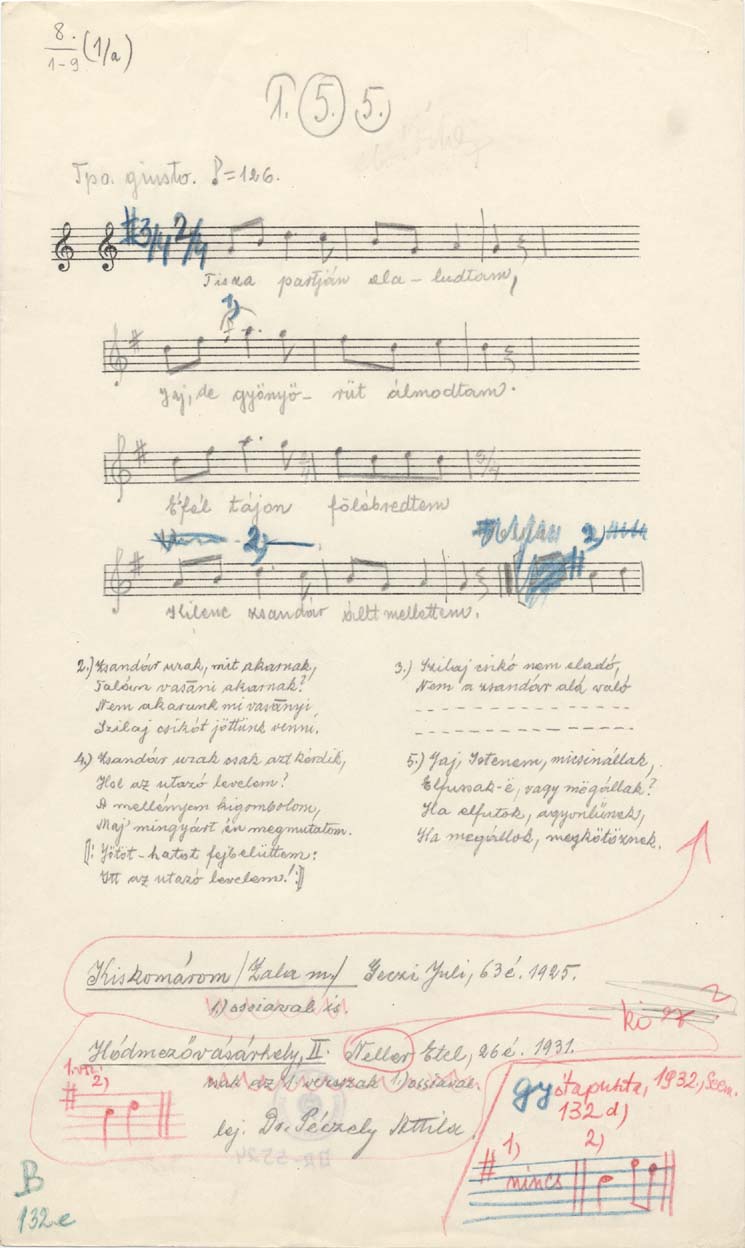 8.
1-9 (1/a)
I. 5. 5.
Tpo. giusto. =126.
3/4 2/4
Tisza partján ela-ludtam,
1)
Jaj, de gyönyö- rüt álmodtam.
3/4
Éfél tájon fölébredtem
2)
2)
Kilenc zsandár állt mellettem.
2.) Zsandár urak, mit akarnak,
Talán vasáni akarnak?
Nem akarunk mi vasányi,
Szilaj csikót jöttünk venni.
3.) Szilaj csikó nem eladó,
Nem a zsandár alá való
4.) Zsandár urak csak azt kérdik,
Hol az utazó levelem?
A mellényem kigombolom,
Maj' mingyárt én megmutatom.
||: Ötöt-hatot fejbelüttem:
Itt az utazó levelem! :||
5.) Jaj, Istenem, micsinállak,
Elfussak-ë, vagy mëgállak?
Ha elfutok, agyonlűnek,
Ha megállok, megkötöznek.
Kiskomárom (Zala m.) Geczi Juli, 63 é. 1925.
1.) ossiaval is.
Hódmezővásárhely, II. Neller Etel, 26 é. 1931.
csak az 1. versszak 1.) ossiával.
lej. Dr. Péczely Attila.
2)
gy
Ötapuszta, 1932.,
132 d)
1) 2)
nincs
B
132e